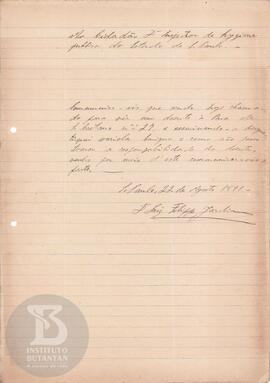 Ao Cidadão Dr. Inspector de Hygiene
publica do Estado de S. Paulo.
Communico-vos que sendo hoje chama-
do para vêr um doente á Rua
nº 29, e examinando-o diag-
variola benigna e como não
tomar a responsabilidade do doente,
venho por meio d'esta communicar-vos o
facto.
S. Paulo, 22 de Agosto 1891.
Dr. Luiz Felippe
INSTITUTO
BUTANTAN
A serviço da vida